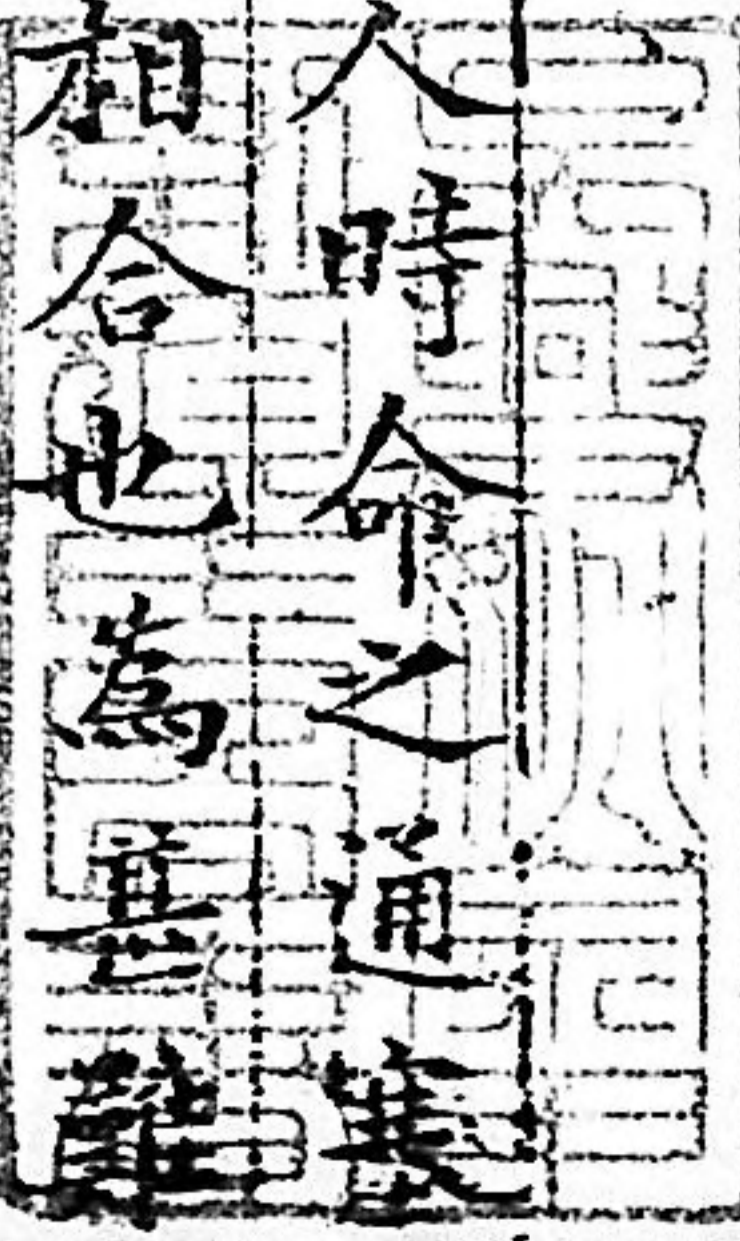 人時命之通塞
相合也為甚難